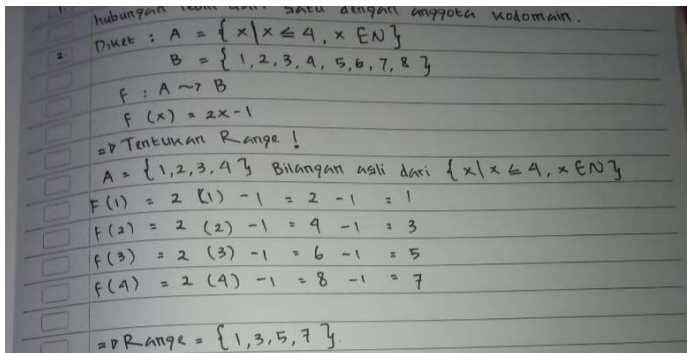 hubungan lebih dari satu dengan anggota kodomain.
2. Diket : A = { x | x ≤ 4, x EN }
B = { 1, 2, 3, 4, 5, 6, 7, 8 }
f : A → B
f (x) = 2x - 1
=> Tentukan Range !
A = { 1, 2, 3, 4 } Bilangan asli dari { x | x ≤ 4, x EN }
F (1) = 2 (1) - 1 = 2 - 1 = 1
f (2) = 2 (2) - 1 = 4 - 1 = 3
f (3) = 2 (3) - 1 = 6 - 1 = 5
f (4) = 2 (4) - 1 = 8 - 1 = 7
=> Range = { 1, 3, 5, 7 }.